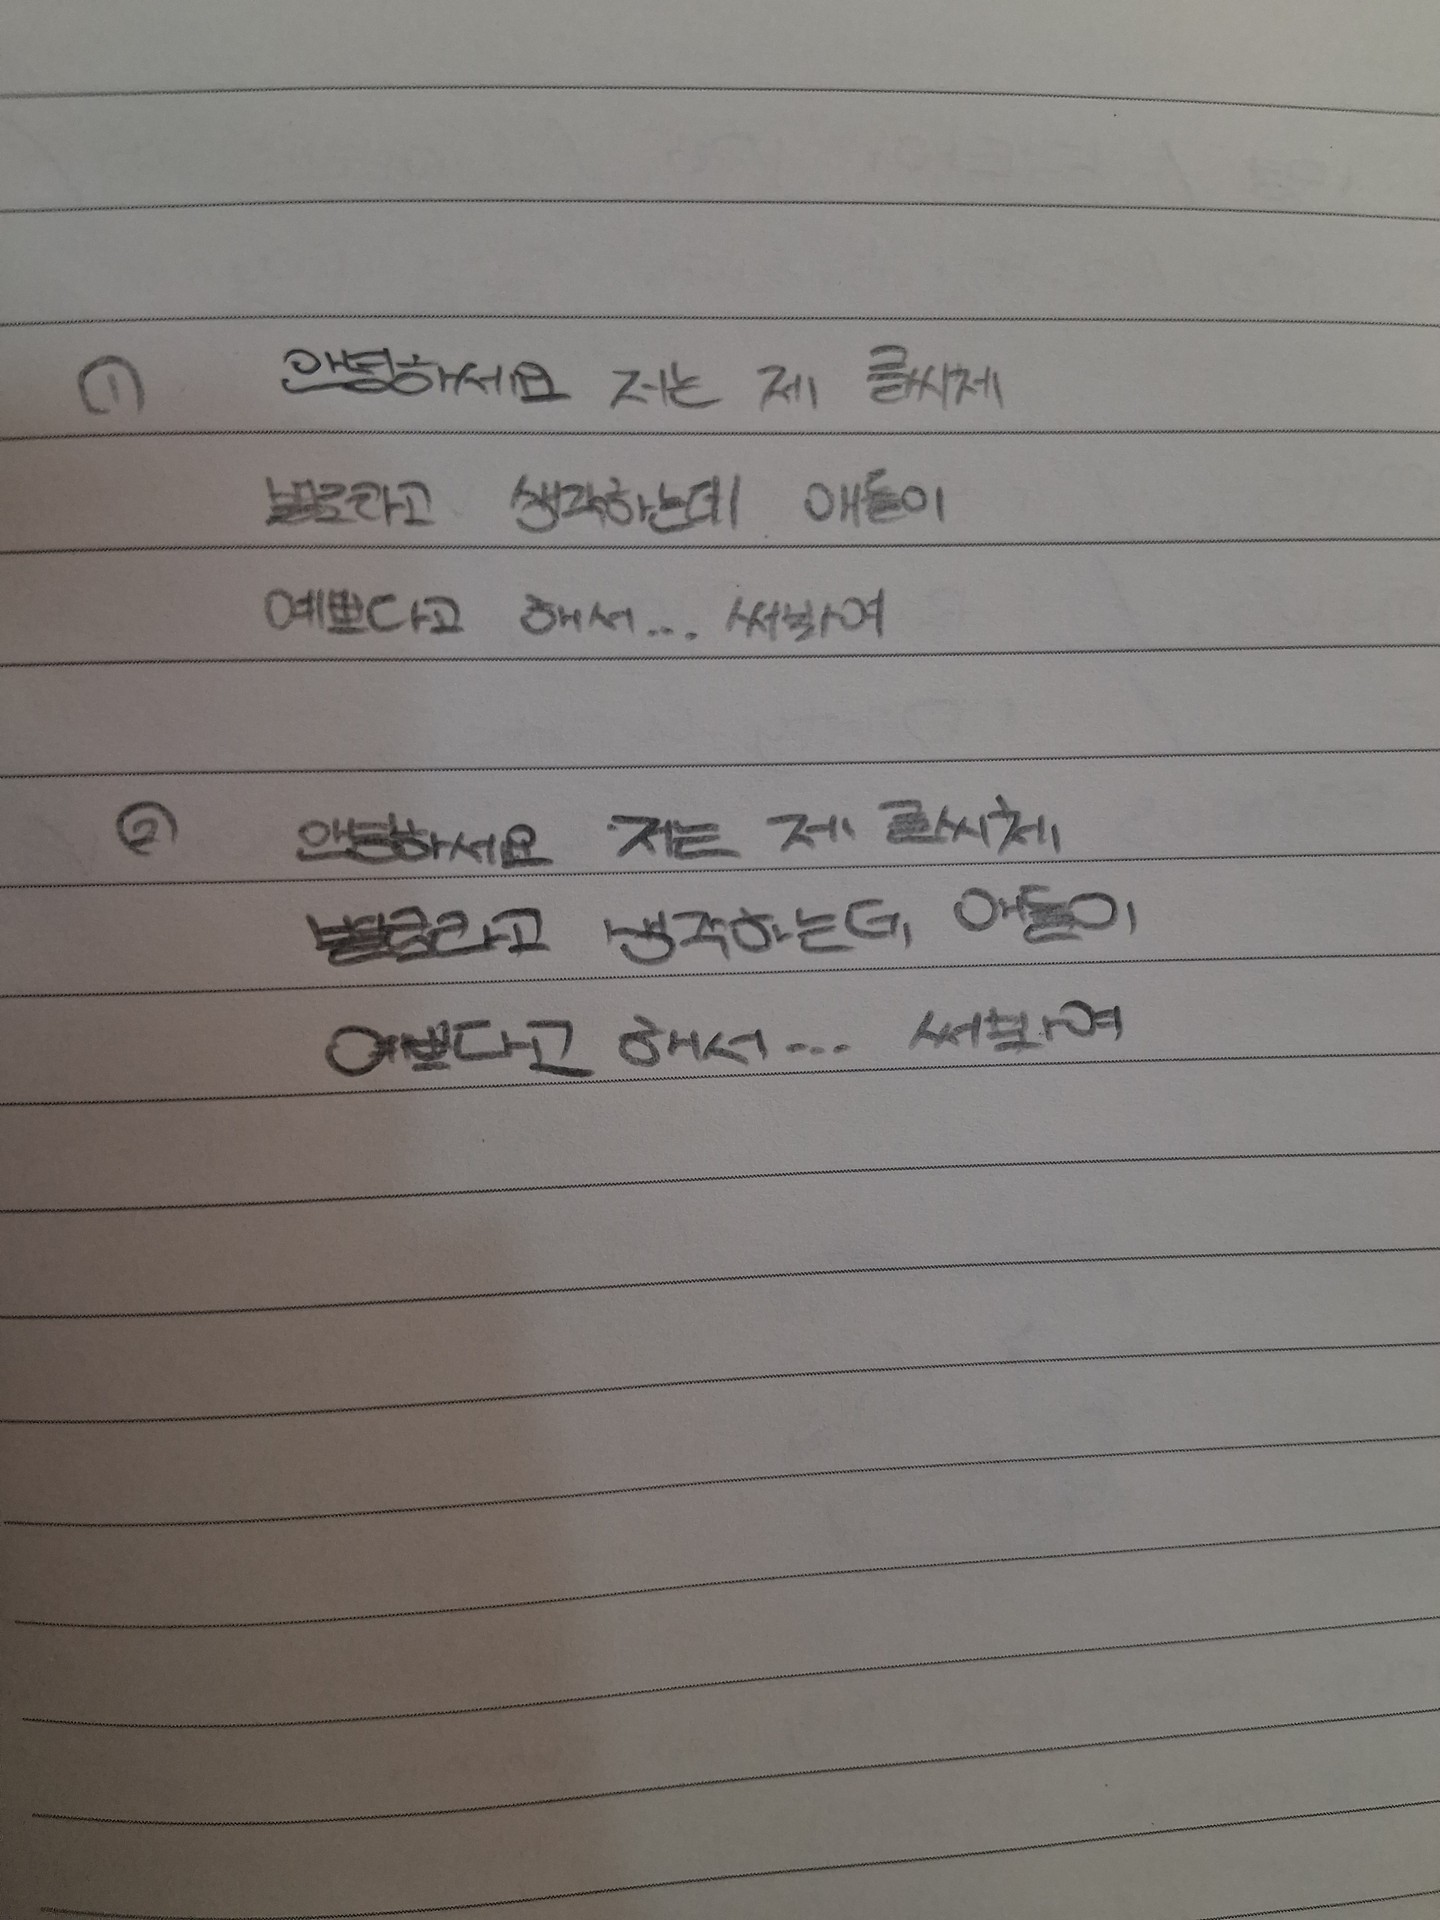 ① 안녕하세요 저는 제 글씨체
별로라고 생각하는데 애들이
예쁘다고 해서... 써봐여
② 안녕하세요 저는 제 글씨체
별로라고 생각하는데 애들이
예쁘다고 해서... 써봐여